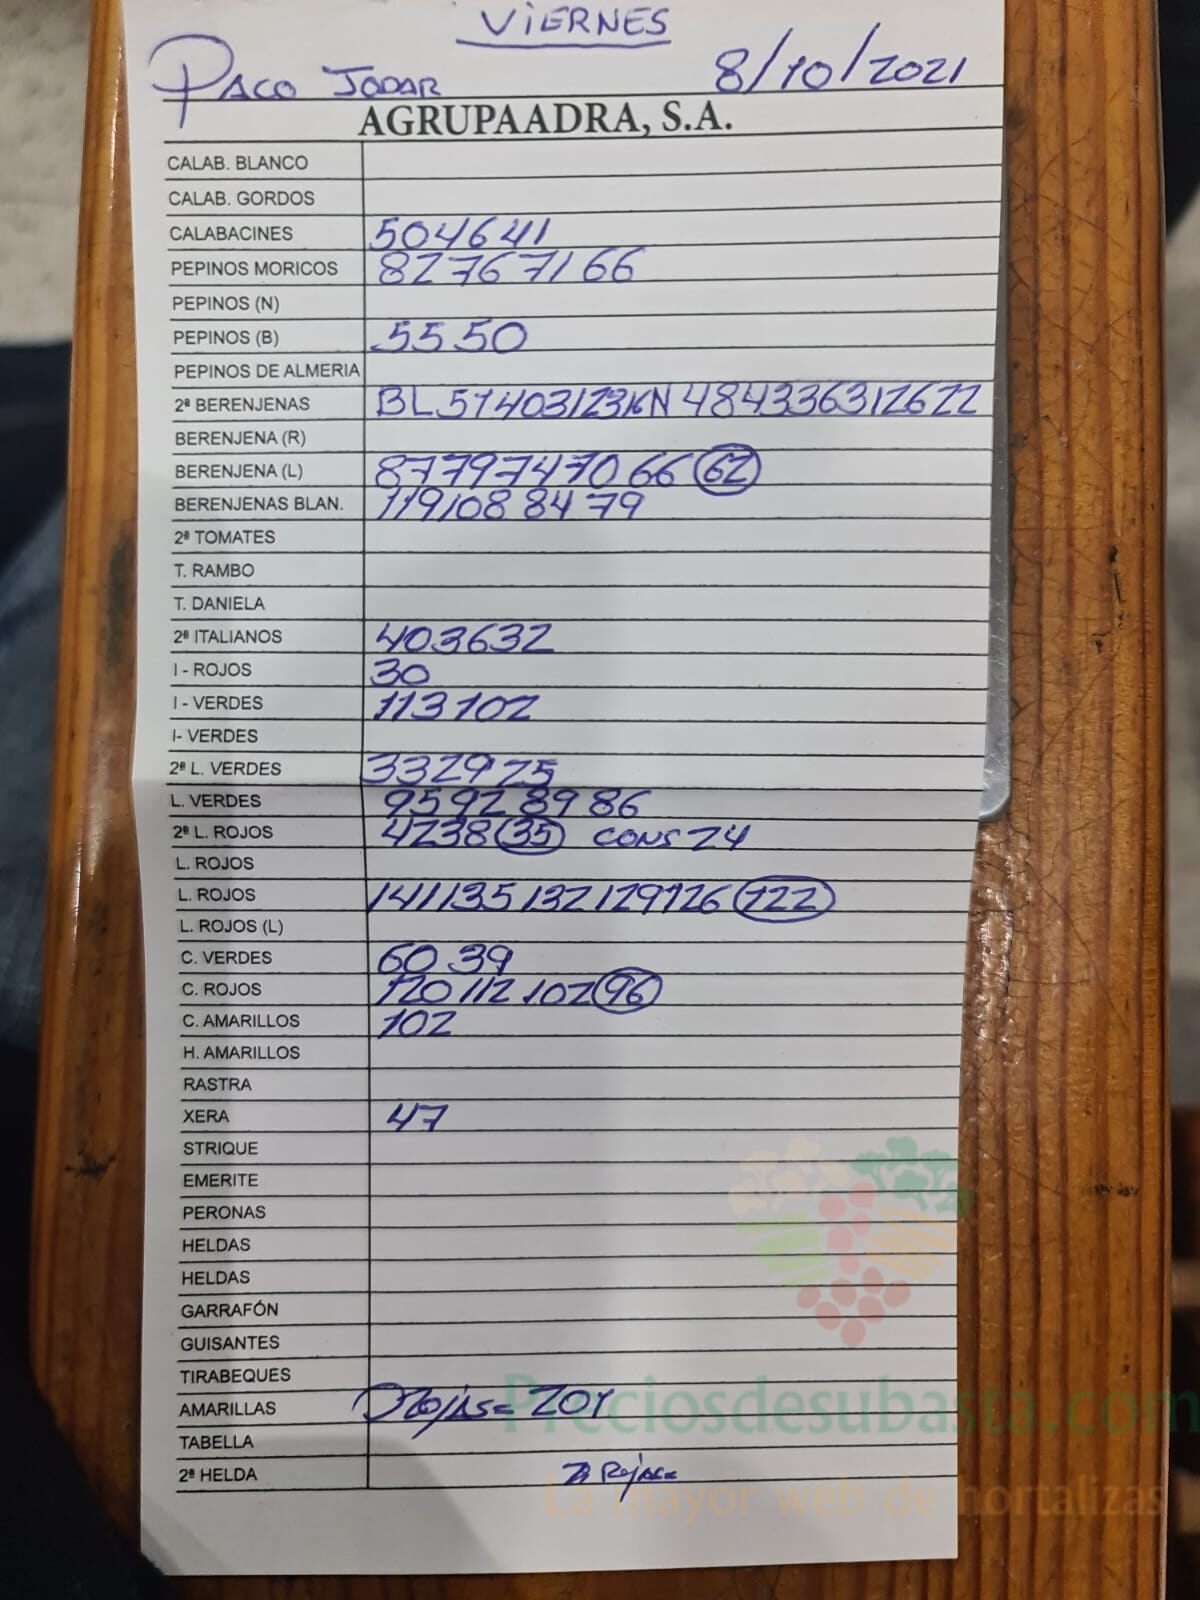 VIERNES
PACO JODAR 8/10/2021
AGRUPAADRA, S.A.
CALAB. BLANCO
CALAB. GORDOS
CALABACINES 504641
PEPINOS MORICOS 82767166
PEPINOS (N)
PEPINOS (B) 5550
PEPINOS DE ALMERIA
2ª BERENJENAS BL 51403123 KN 484336312622
BERENJENA (R)
BERENJENA (L) 877974706662
BERENJENAS BLAN. 119108 84 79
2ª TOMATES
T. RAMBO
T. DANIELA
2ª ITALIANOS 403632
I - ROJOS 30
I - VERDES 113 102
I- VERDES
2ª L. VERDES 332925
L. VERDES 95928986
2ª L. ROJOS 423835 CONS 24
L. ROJOS
L. ROJOS 141135132129126 122
L. ROJOS (L)
C. VERDES 60 39
C. ROJOS 120 112 102 96
C. AMARILLOS 102
H. AMARILLOS
RASTRA
XERA 47
STRIQUE
EMERITE
PERONAS
HELDAS
HELDAS
GARRAFÓN
GUISANTES
TIRABEQUES
AMARILLAS 201
TABELLA
2ª HELDA
Preciosdesubasta.com
La mayor web de hortalizas